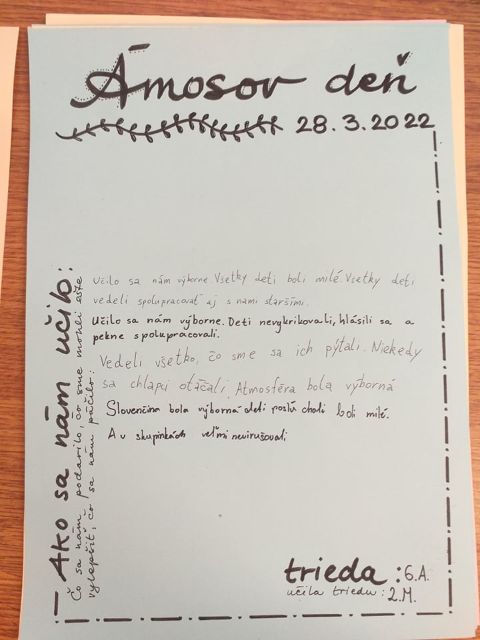 Ámosov deň
28.3.2022
Ako sa nám učilo:
Čo sa nám podarilo, čo sme mohli ešte
vylepšiť, čo sa nám páčilo:
Učilo sa nám výborne. Všetky deti boli milé. Všetky deti
vedeli spolupracovať aj s nami staršími.
Učilo sa nám výborne. Deti nevykrikovali, hlásili sa a
pekne spolupracovali.
Vedeli všetko, čo sme sa ich pýtali. Niekedy
sa chlapci otáčali. Atmosféra bola výborná
Slovenčina bola výborná deti poslúchali boli milé.
A v skupinkách veľmi nevirušovali
trieda: 6.A.
učila triedu: 2.M.